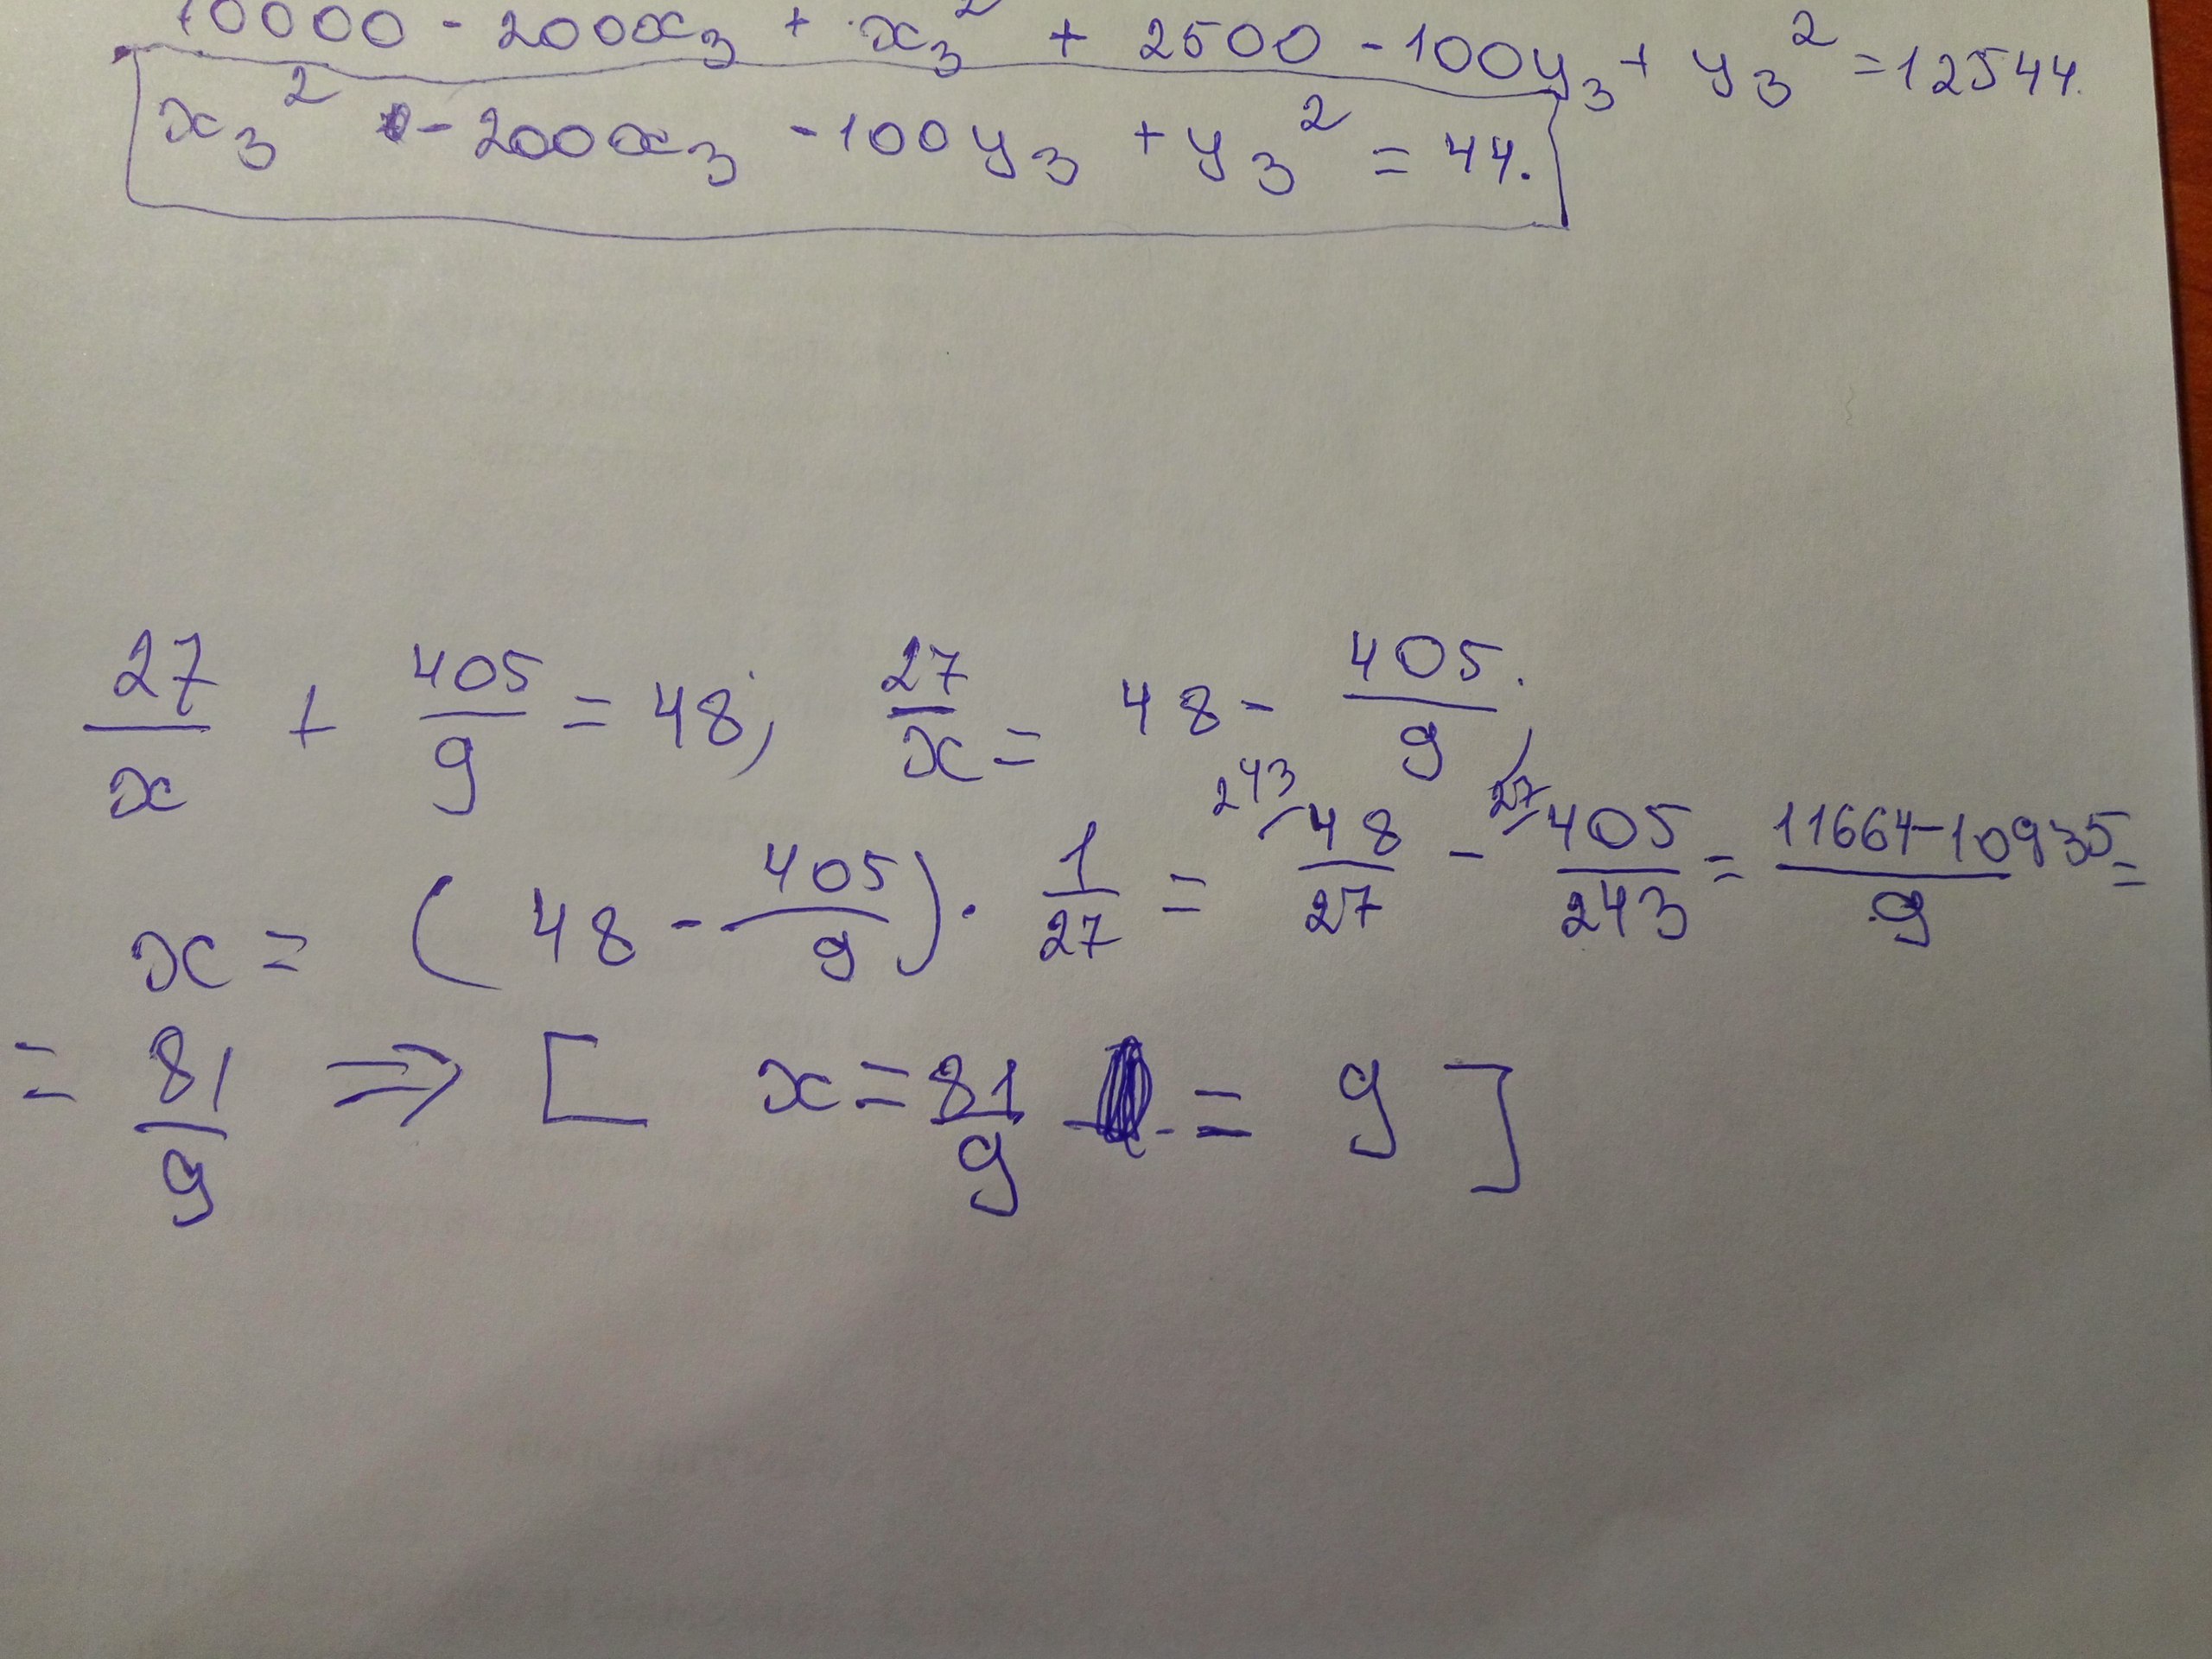 10000 - 200x₃ + x₃² + 2500 - 100y₃ + y₃² = 12544.
x₃² - 200x₃ - 100y₃ + y₃² = 44.
27/x + 405/9 = 48; 27/x = 48 - 405/9;
x = (48 - 405/9) · 1/27 = 243/ 48/27 - 27/ 405/243 = (11664-10935)/9 =
= 81/9 ⇒ [ x = 81/9 = 9 ]